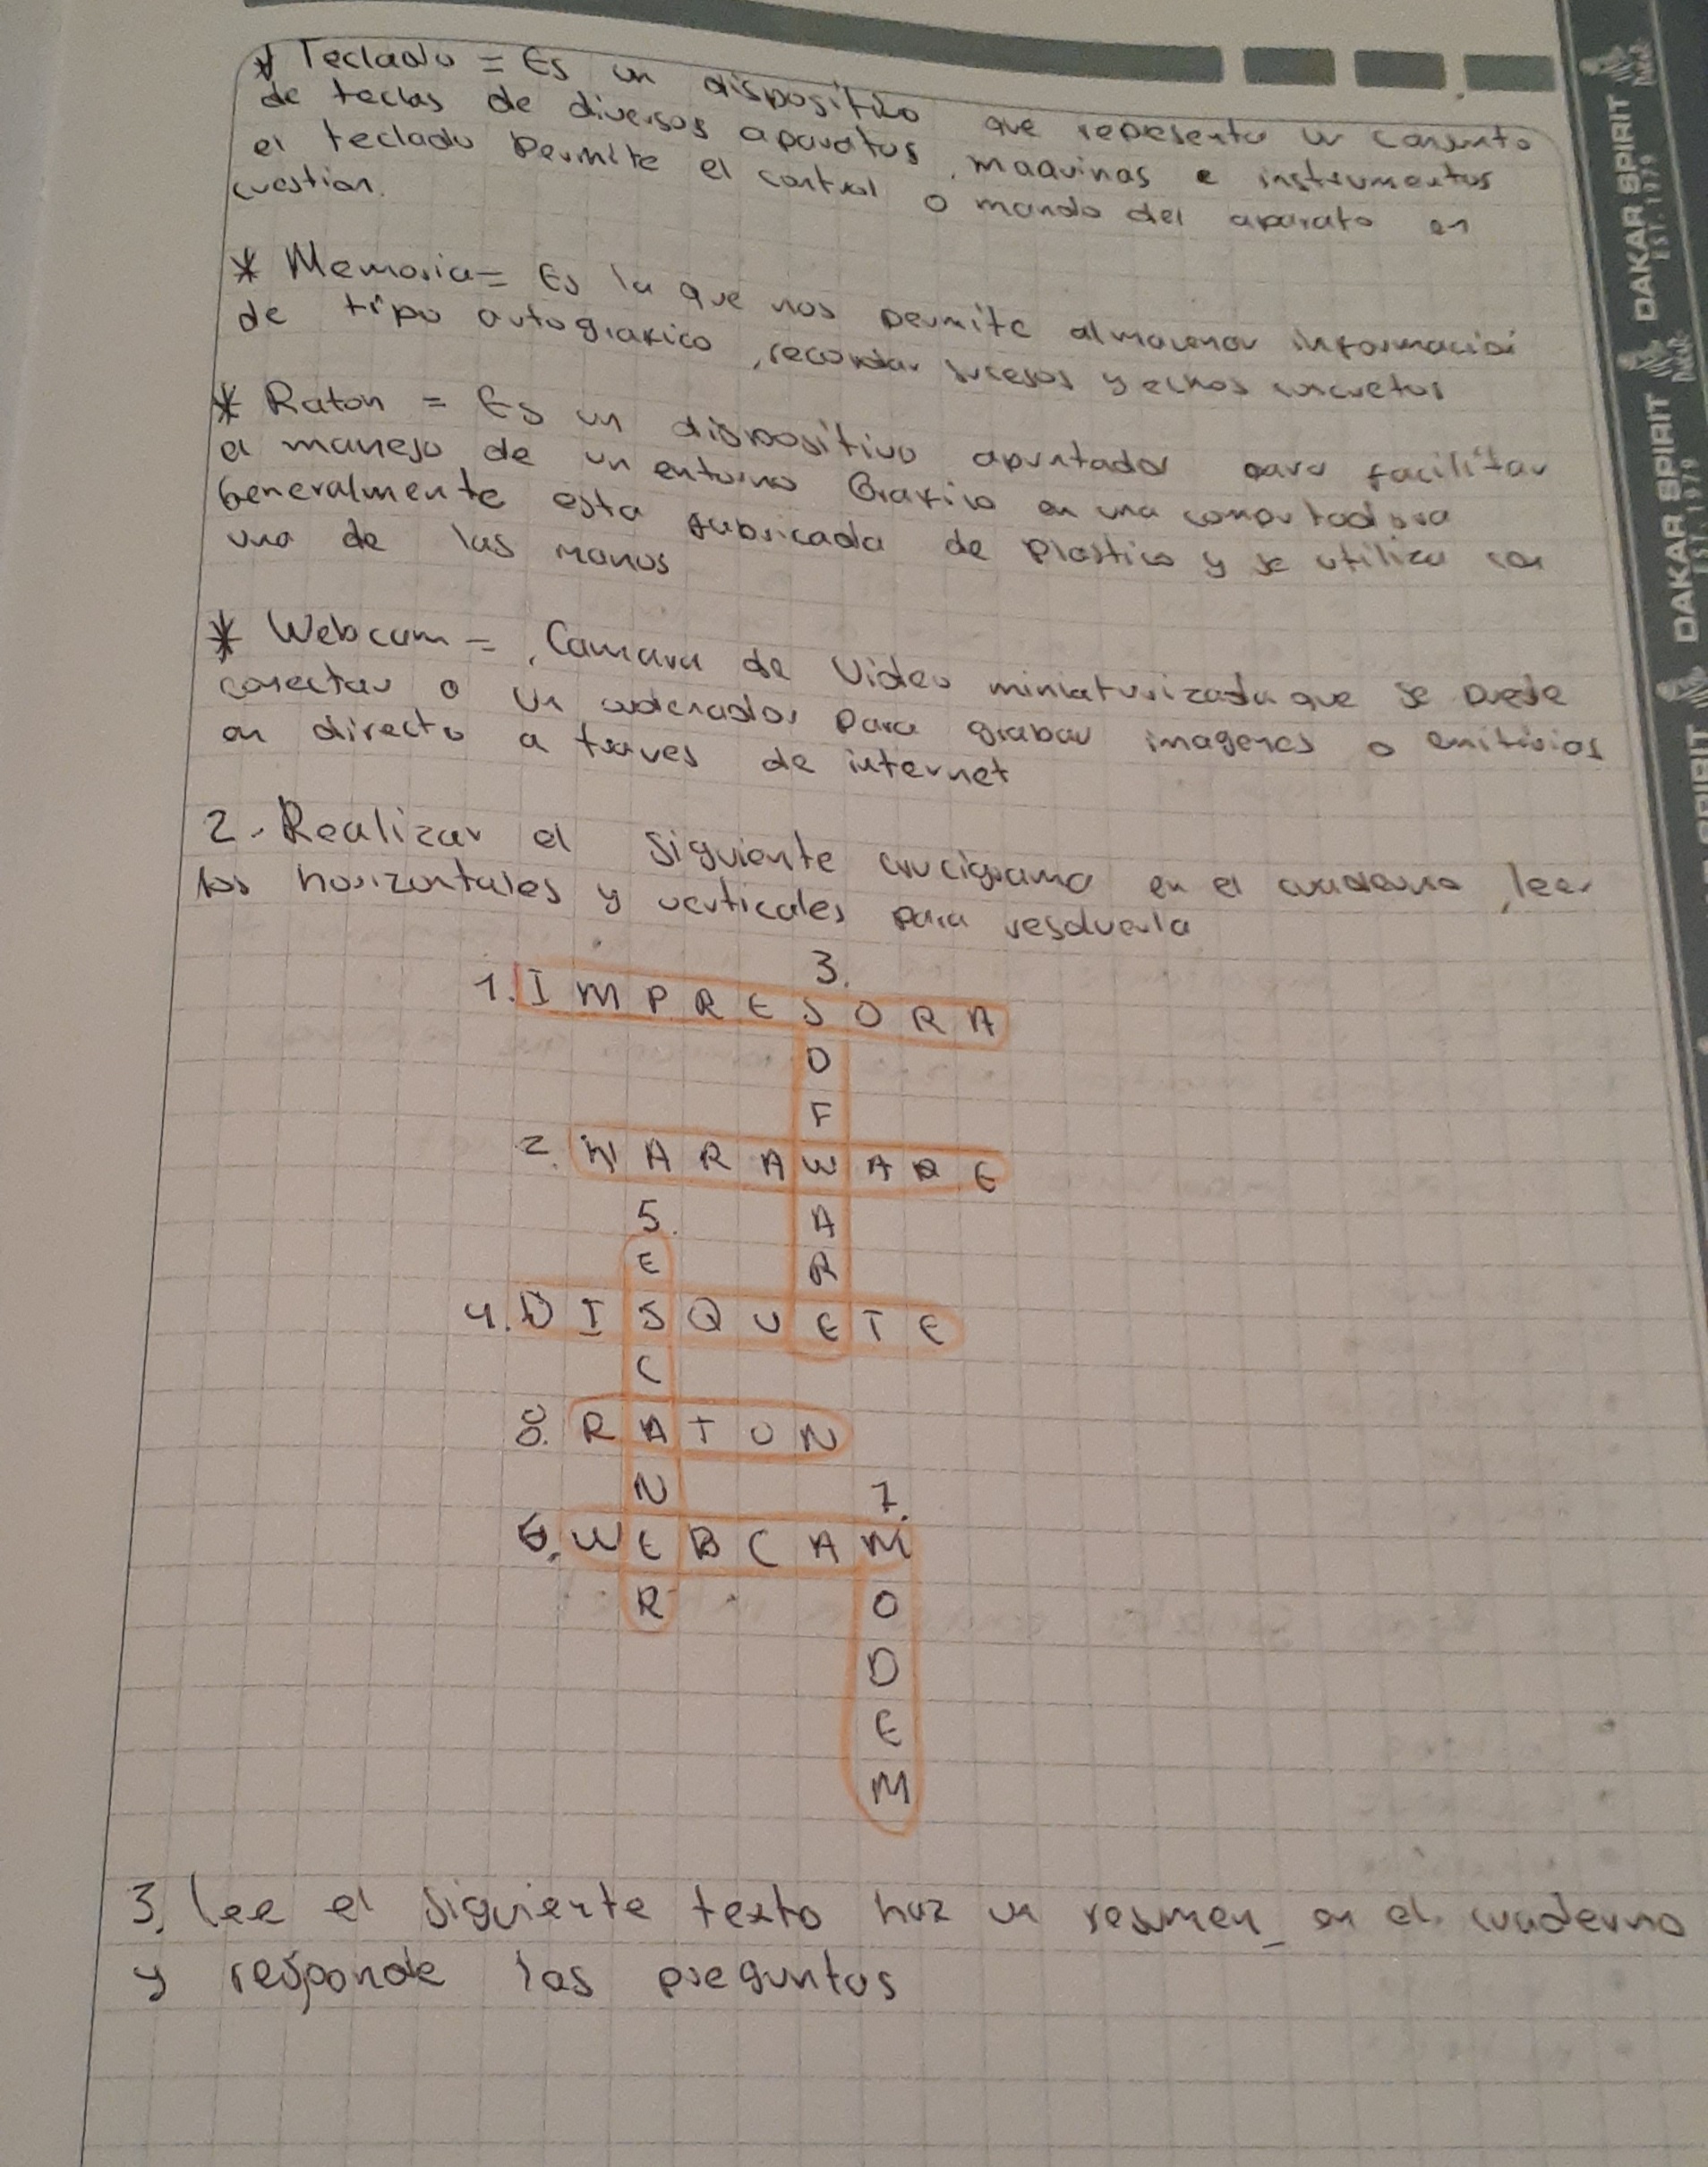 * Teclado = Es un dispositivo que representa un conjunto
de teclas de diversos aparatos, maquinas e instrumentos
el teclado permite el control o mando del aparato en
cuestion.
* Memoria = Es la que nos permite almacenar informacion
de tipo autografico, recordar sucesos y echos concretos
* Raton = Es un dispositivo apuntador para facilitar
el manejo de un entorno Grafico en una computadora
Generalmente esta fabricada de plastico y se utiliza con
una de las manos
* Webcam = Camara de Video miniaturizada que se puede
conectar a un ordenador para grabar imagenes o emitirlas
en directo a traves de internet
2. Realizar el siguiente crucigrama en el cuaderno, leer
los horizontales y verticales para resolverla
3.
1. I M P R E S O R A
O
F
2. H A R A W A R E
5. A
E R
4. D I S Q U E T E
C
8. R A T O N
N 7.
6. W E B C A M
R O
D
E
M
3. lee el siguiente texto haz un resumen en el cuaderno
y responde las preguntas
DAKAR SPIRIT
EST. 1979
Dakar
DAKAR SPIRIT
EST. 1979
SPIRIT